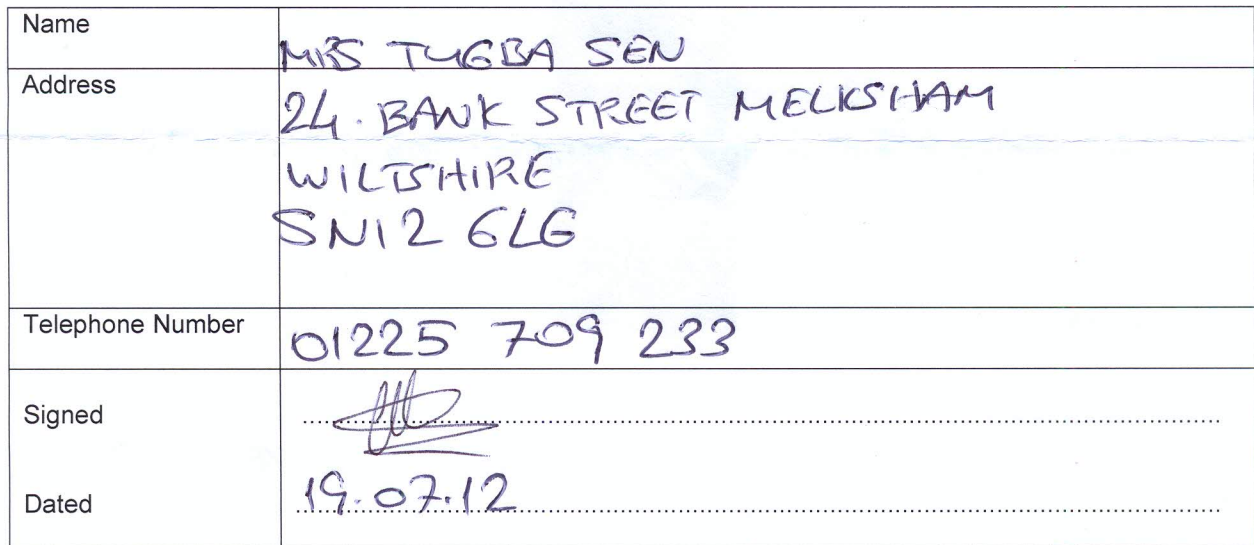 Name
MRS TUGBA SEN
Address
24. BANK STREET MELKSHAM
WILTSHIRE
SN12 6LG
Telephone Number
01225 709 233
Signed
Dated
19.07.12